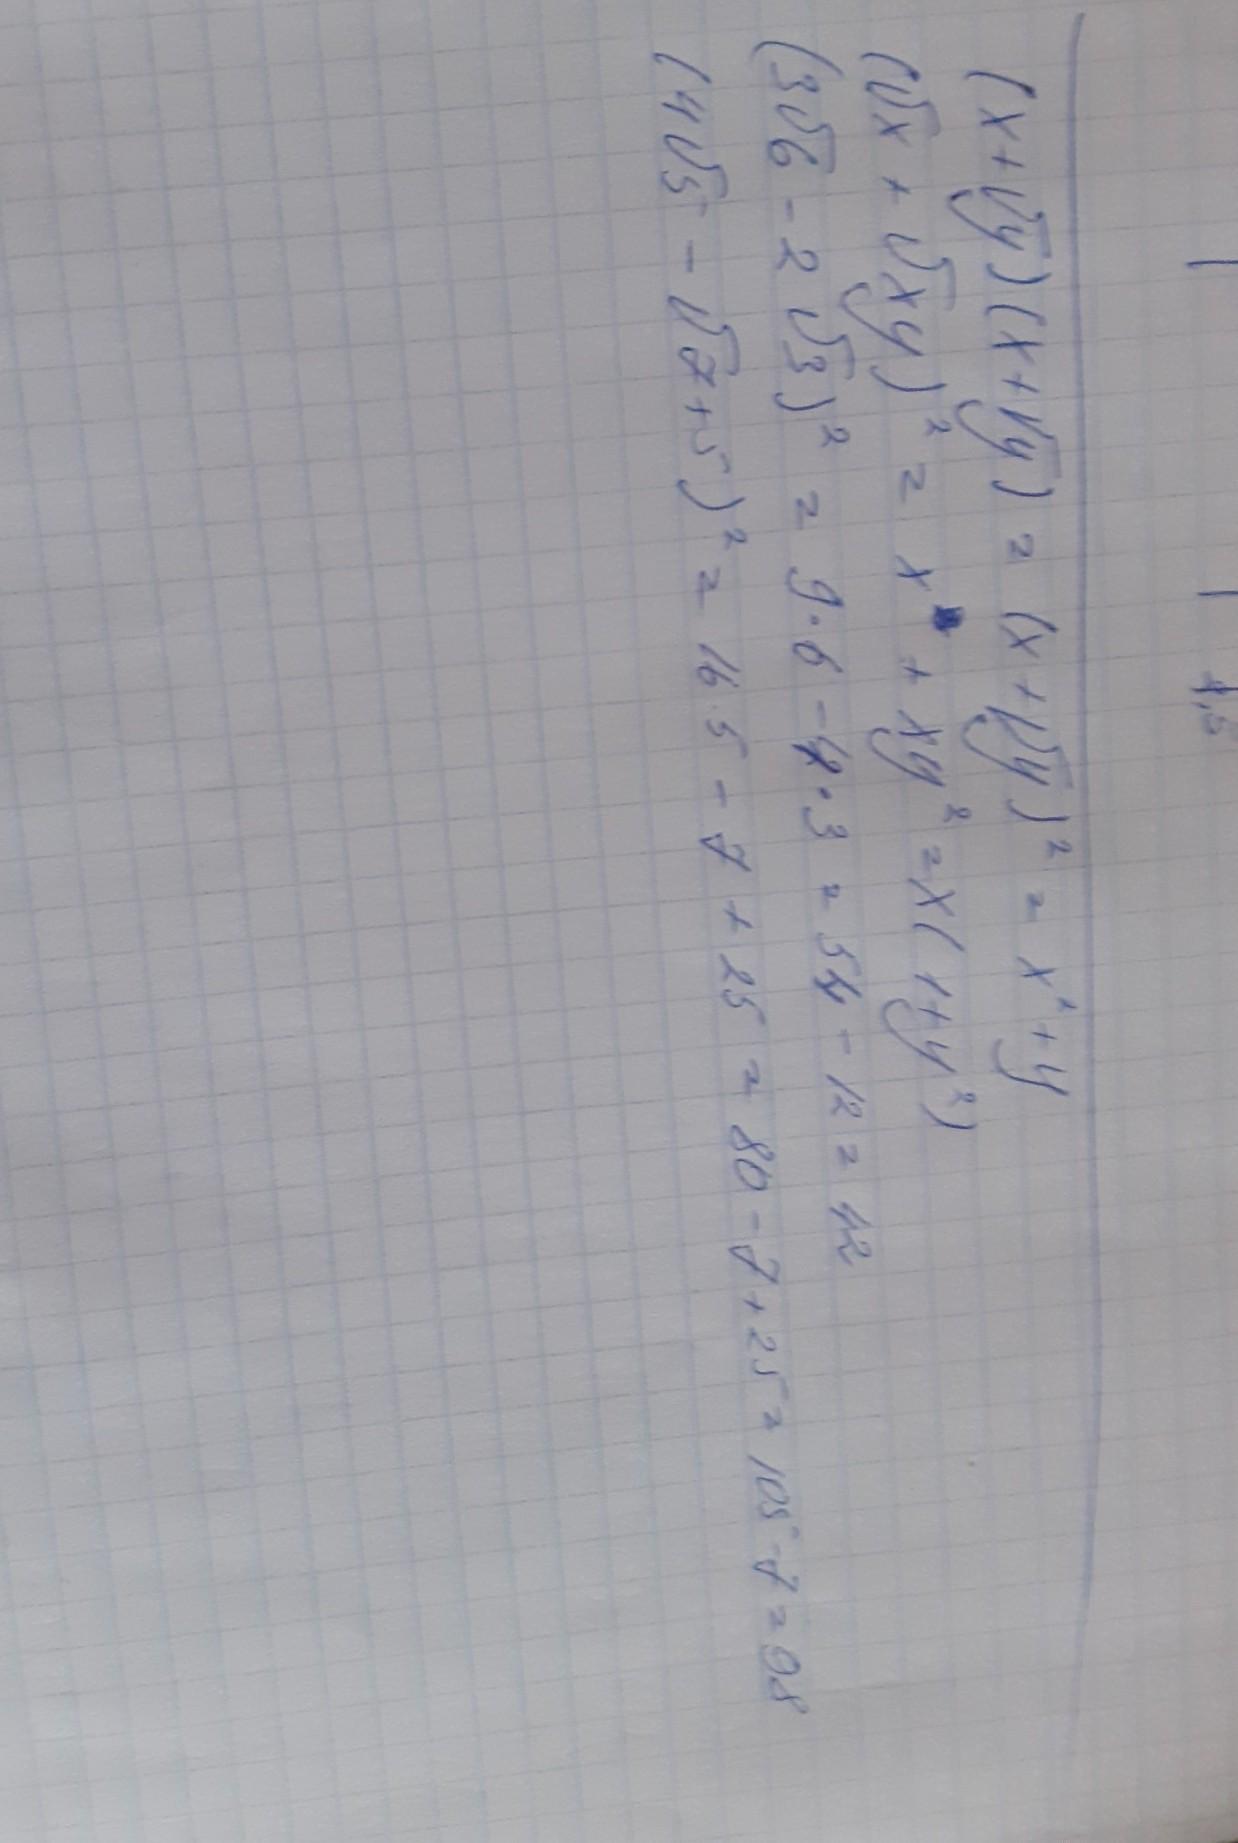 (x+√y)(x+√y) = (x+√y)² = x²+y
(√x + √xy)² = x + xy² = x(1+y²)
(3√6 - 2√3)² = 9·6 - 4·3 = 54 - 12 = 42
(4√5 - √7+5)² = 16·5 - 7 + 25 = 80 - 7 + 25 = 105 - 7 = 98